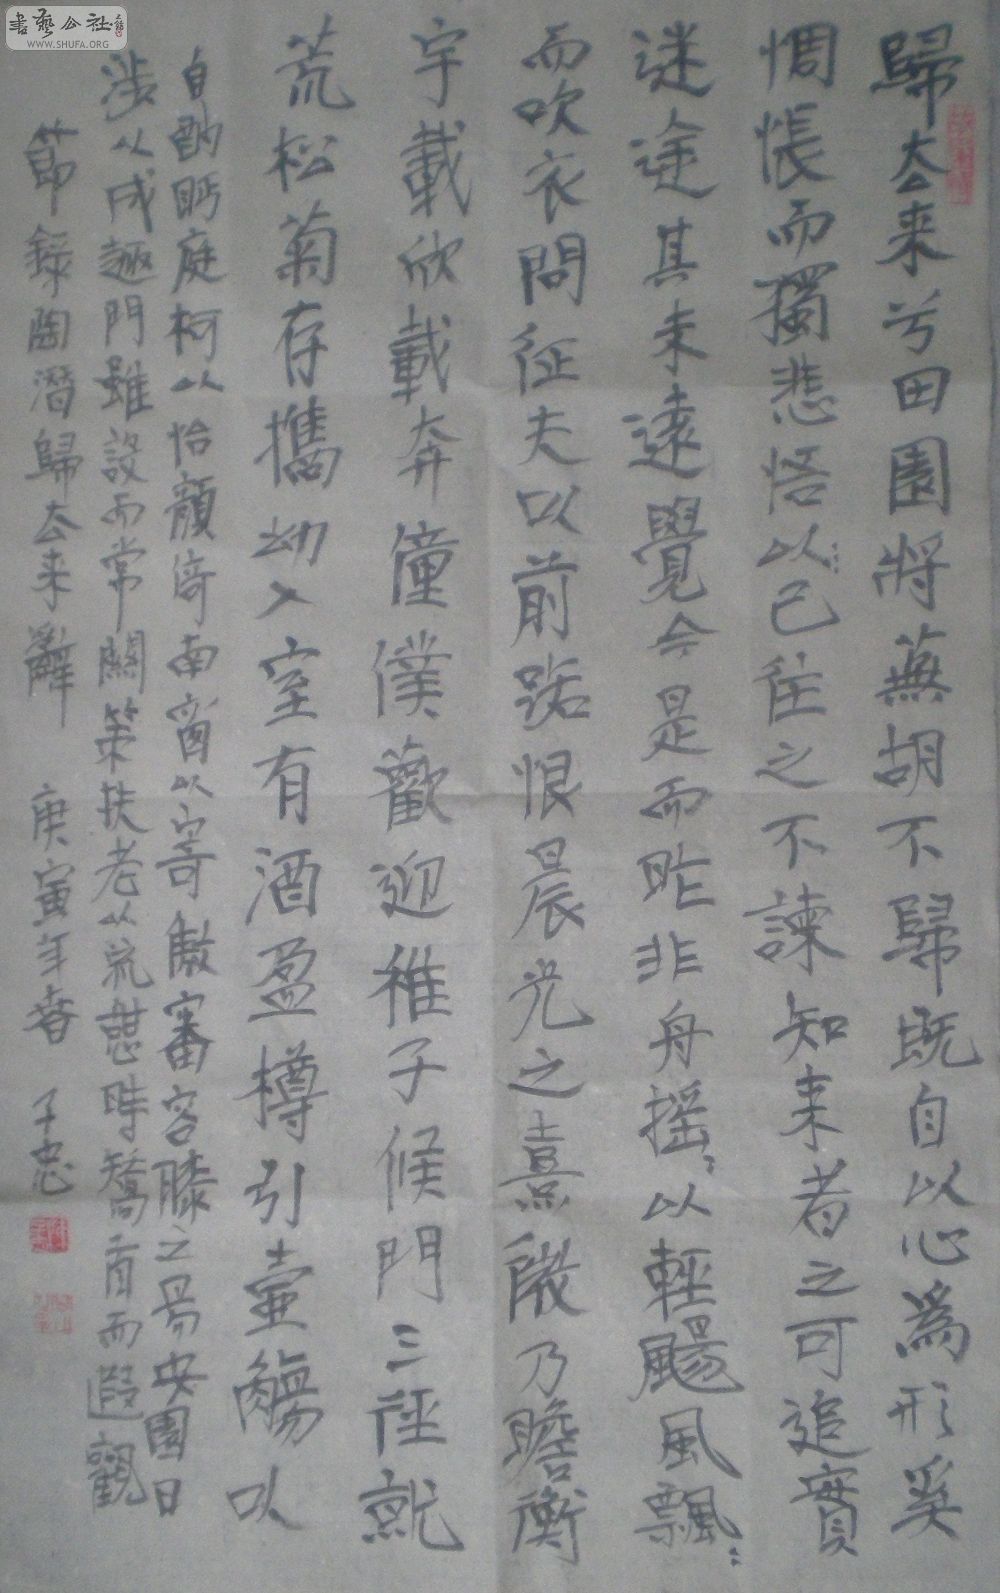 書藝公社
WWW.SHUFA.ORG
歸去来兮田園將蕪胡不歸既自以心為形奚
惆悵而獨悲悟以已往之不諫知来者之可追實
迷途其未遠覺今是而昨非舟摇以輕颺風飄
而吹衣問征夫以前路恨晨光之熹微乃瞻衡
宇載欣載奔僮僕歡迎稚子候門三徑就
荒松菊存攜幼入室有酒盈樽引壺觴以
自酌眄庭柯以怡顏倚南窗以寄傲審容膝之易安園日
涉以成趣門雖設而常關策扶老以流憩時矯首而遐觀
節錄陶潛歸去来辭 庚寅年春 子忠